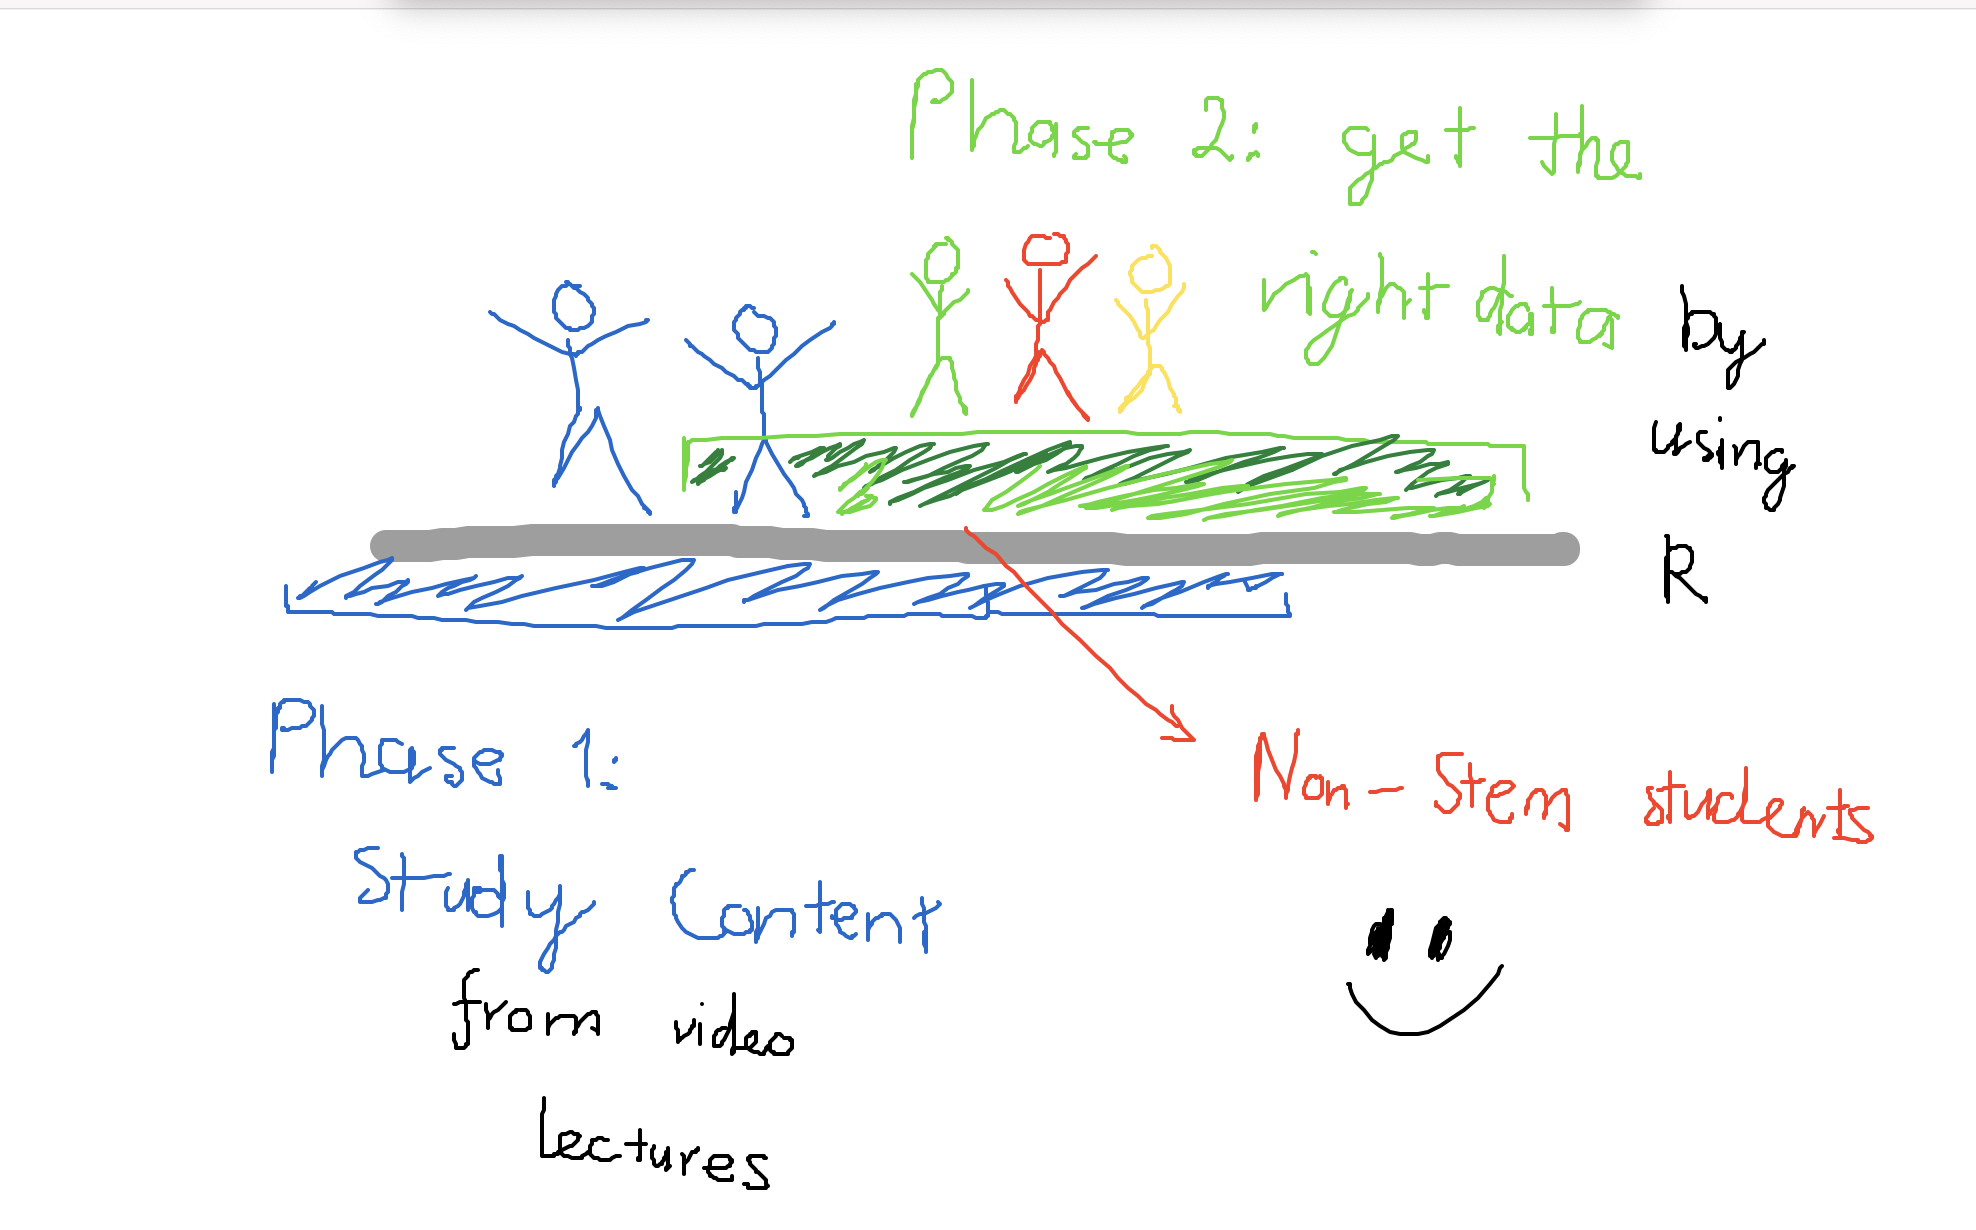 Phase 2: get the
right data by
using
R
Phase 1:
Study Content
from video
lectures
Non-Stem students